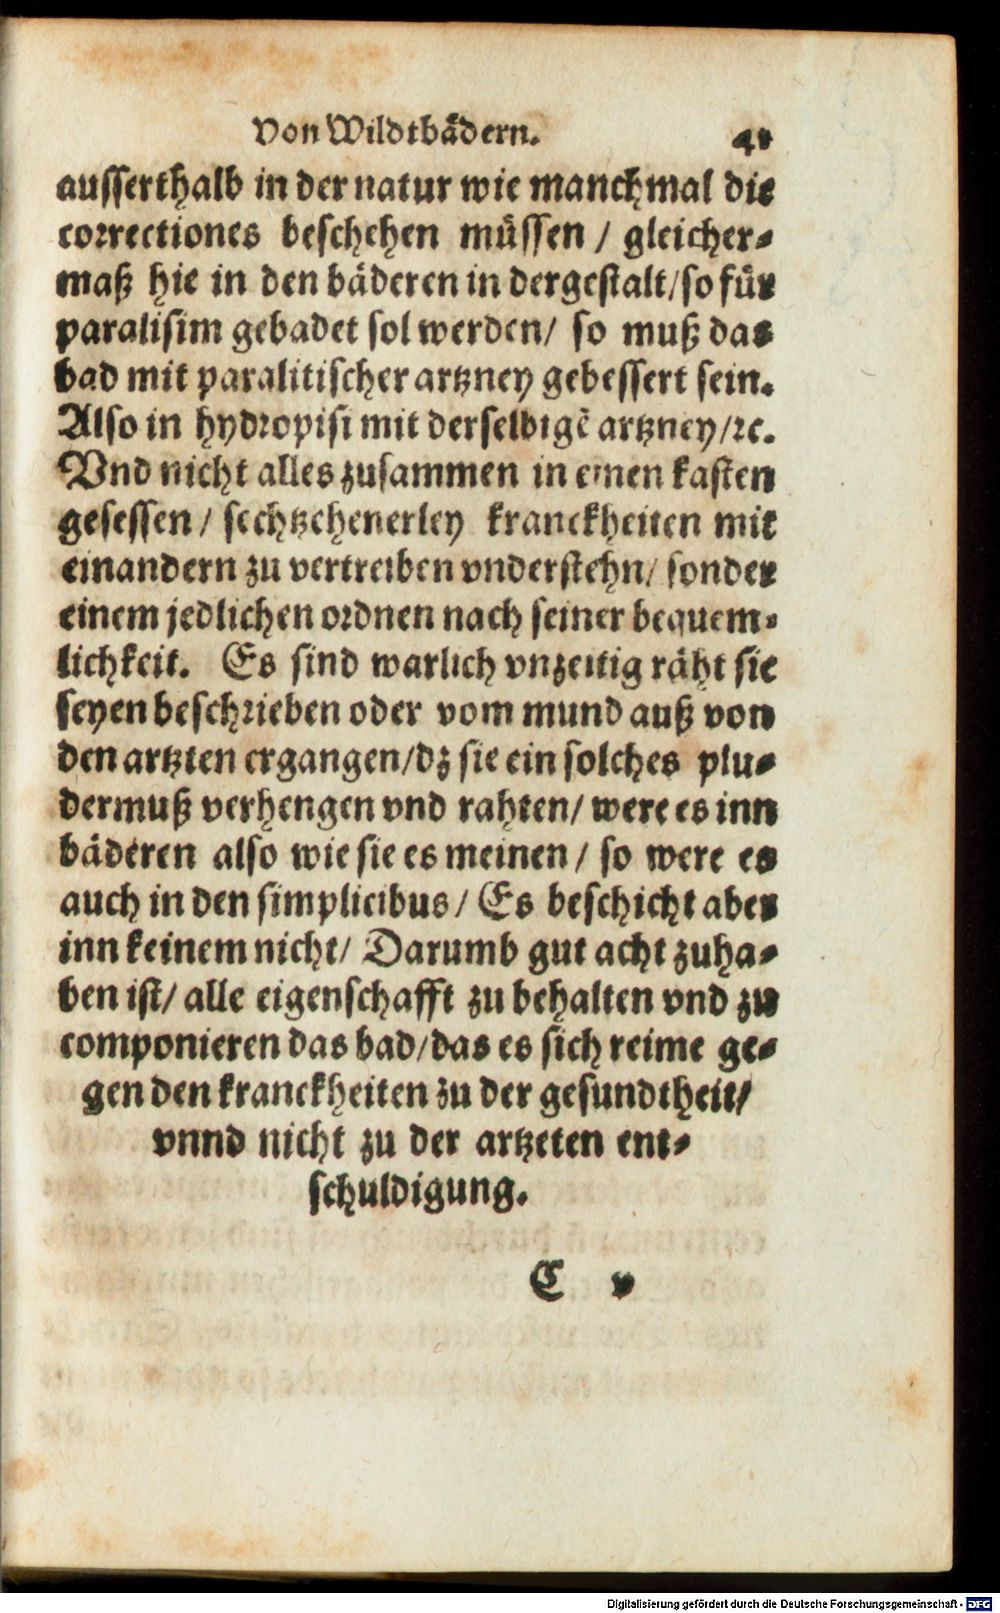 Von Wildtbädern. 41
ausserthalb in der natur wie manchmal die
correctiones beschehen müssen / gleicher-
maß hie in den bäderen in dergestalt / so für
paralisim gebadet sol werden / so muß das
bad mit paralitischer artzney gebessert sein.
Also in hydropisi mit derselbigē artzney / ꝛc.
Vnd nicht alles zusammen in einen kasten
gesessen / sechtzehenerley kranckheiten mit
einandern zu vertreiben vnderstehn / sonder
einem jedlichen ordnen nach seiner bequem-
lichkeit. Es sind warlich vnzeitig räht sie
seyen beschrieben oder vom mund auß von
den artzten ergangen / dz sie ein solches plu-
dermuß verhengen vnd rahten / were es inn
bäderen also wie sie es meinen / so were es
auch in den simplicibus / Es beschicht aber
inn keinem nicht / Darumb gut acht zuha-
ben ist / alle eigenschafft zu behalten vnd zu
componieren das bad / das es sich reime ge-
gen den kranckheiten zu der gesundtheit /
vnnd nicht zu der artzeten ent-
schuldigung.
C v
Digitalisierung gefördert durch die Deutsche Forschungsgemeinschaft - DFG